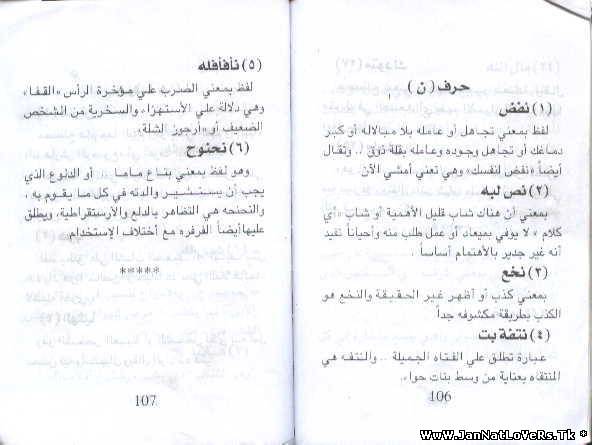 حرف ( ن )
(١) نفض
لفظ بمعني تجاهل أو عامله بلا مبالاله أو كبر
دماغك أو تجاهل وجوده وعامله بقلة ذوق .. وتقال
أيضاً «نفض لنفسك» وهي تعني أمشي الآن
(٢) نص لبه
بمعني أن هناك شاب قليل الأهمية أو شاب «أي
كلام » لا يوفي بميعاد أو عمل طلب منه وأحياناً تفيد
أنه غير جدير بالأهتمام أساساً .
(٣) نخع
بمعني كذب أو أظهر غير الحقيقة والنخع هو
الكذب بطريقة مكشوفه جداً
(٤) نتفة بت
عبارة تطلق علي الفتاه الجميلة .. والنتف هي
المنتقاه بعناية من وسط بنات حواء.
106
(٥) نأفأفله
لفظ بمعني الضرب علي مؤخرة الرأس «القفا»
وهي دلالة علي الأستهزاء والسخرية من الشخص
الضعيف أو «أرجوز الشلة»
(٦) نحنوح
وهو لفظ بمعني بتاع ماما .. أو الدلوع الذي
يجب أن يستشير والدته في كل ما يقوم به ،
والنحنحه هي التظاهر بالدلع والأرستقراطية، ويطلق
عليها أيضاً الفرفره مع أختلاف الإستخدام.
*****
107
www.JanNatLoveRs.Tk *